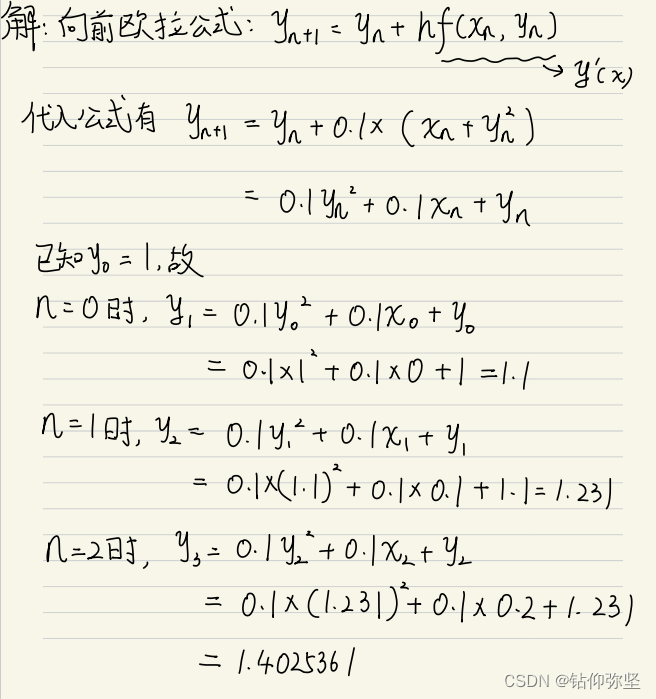 解: 向前欧拉公式: yₙ₊₁ = yₙ + hf(xₙ, yₙ)
→ y'(x)
代入公式有 yₙ₊₁ = yₙ + 0.1 × (xₙ + yₙ²)
= 0.1yₙ² + 0.1xₙ + yₙ
已知y₀ = 1, 故
n = 0时, y₁ = 0.1y₀² + 0.1x₀ + y₀
= 0.1×1² + 0.1×0 + 1 = 1.1
n = 1时, y₂ = 0.1y₁² + 0.1x₁ + y₁
= 0.1×(1.1)² + 0.1×0.1 + 1.1 = 1.231
n=2时, y₃ = 0.1y₂² + 0.1x₂ + y₂
= 0.1×(1.231)² + 0.1×0.2 + 1.231
= 1.4025361
CSDN @钻仰弥坚